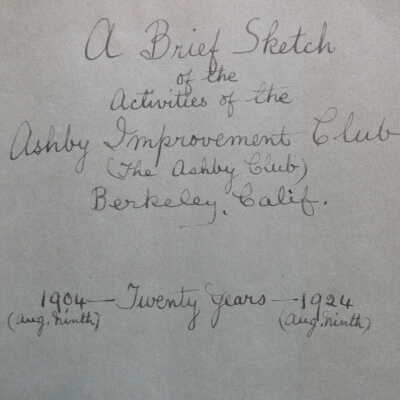 A Brief Sketch
of the
Activities of the
Ashby Improvement Club
(The Ashby Club)
Berkeley, Calif.
1904 — Twenty Years — 1924
(Aug. Ninth) (Aug. Ninth)